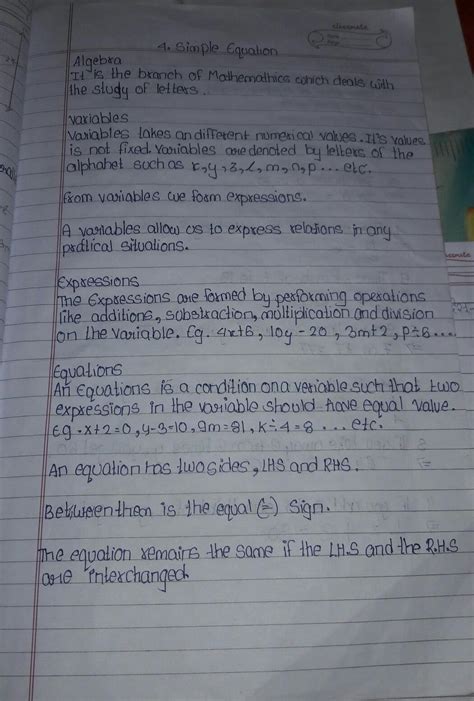 4. Simple Equation
Algebra
It is the branch of Mathemathics which deals with
the study of letters.
Variables
Variables takes on different numerical values. It's values
is not fixed. Variables are denoted by letters of the
alphabet such as x, y, z, l, m, n, p ... etc.
From variables we form expressions.
A variables allow us to express relations in any
pratical situations.
Expressions
The Expressions are formed by performing operations
like additions, substraction, moltiplication and division
on the variable. Eg. 4x+6, 10y-20, 3m+2, p÷8....
Equations
An Equations is a condition on a veriable such that two
expressions in the variable should have equal value.
Eg. x+2=0, y-3=10, 9m=81, k÷4=8 ... etc.
An equation has two sides, LHS and RHS.
Between them is the equal (=) sign.
The equation remains the same if the L.H.S and the R.H.S
are interchanged.